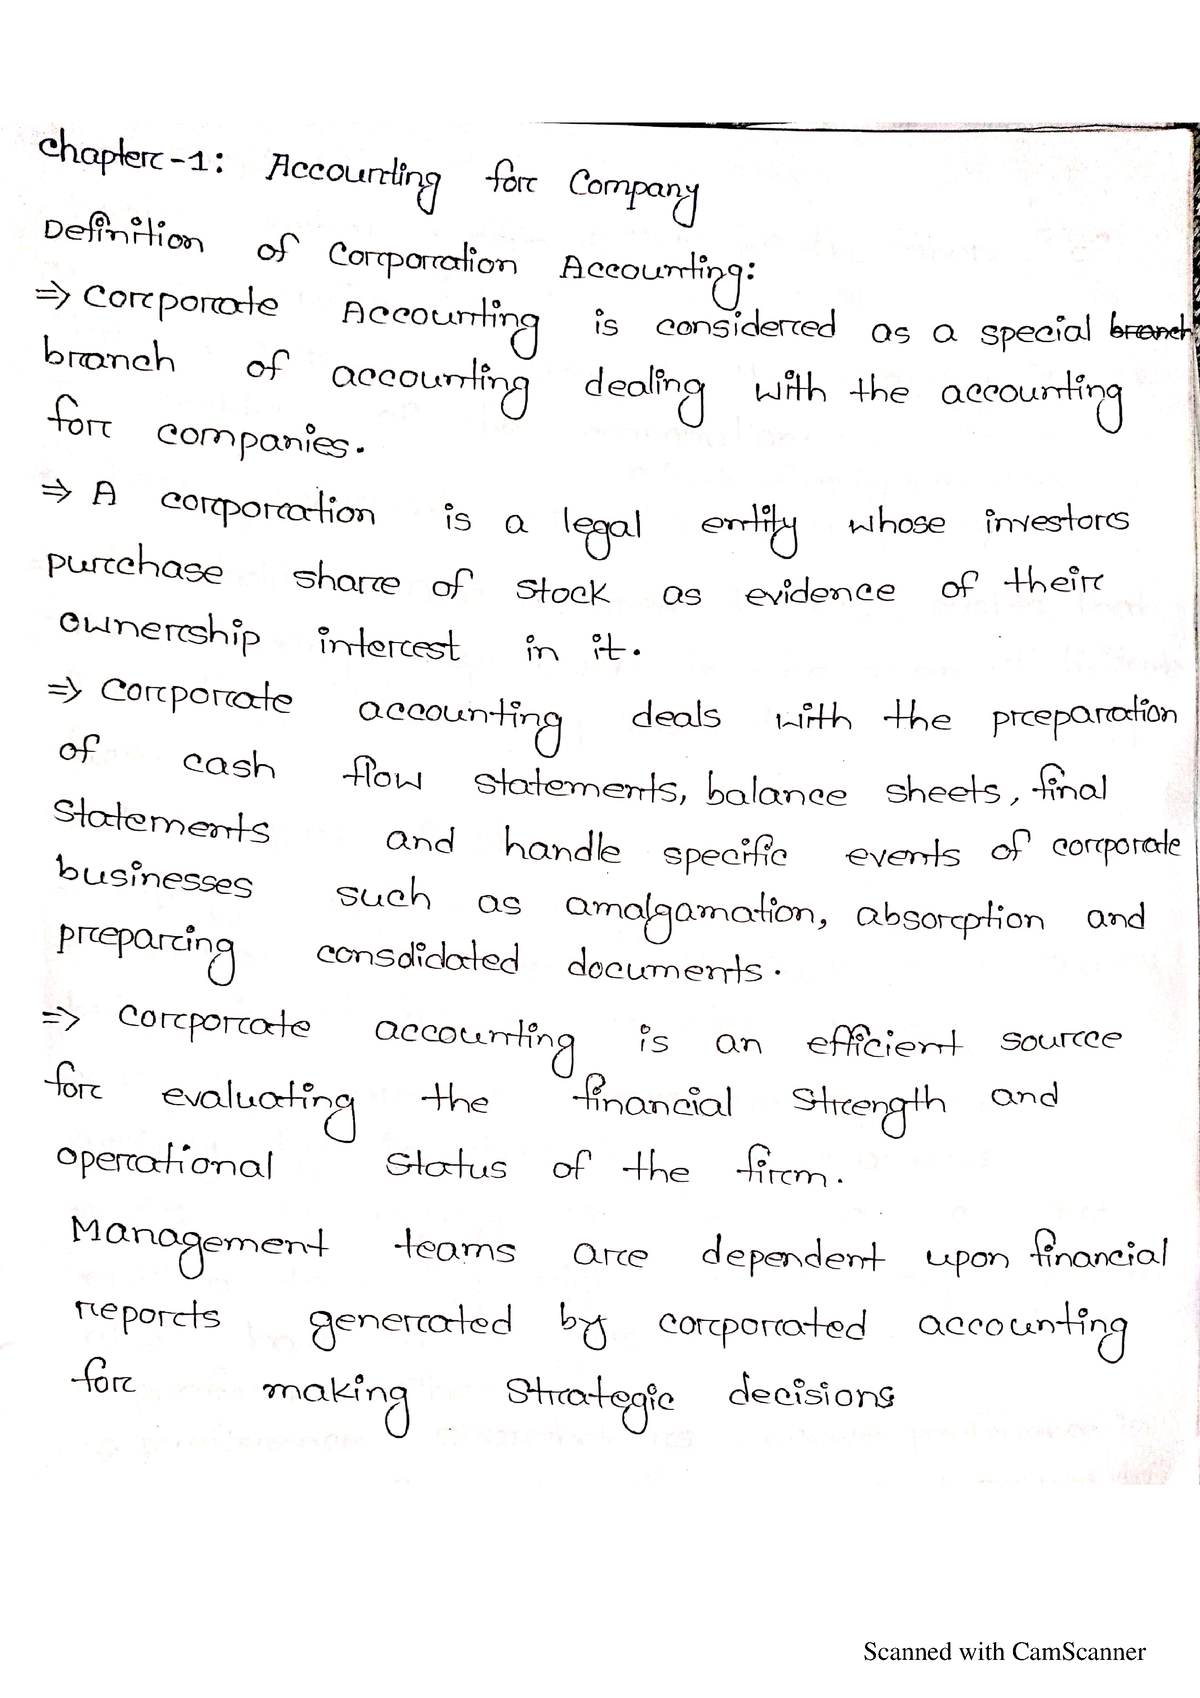 Chapter-1: Accounting for Company
Definition of Corporation Accounting:
⇒ Corporate Accounting is considered as a special branch
branch of accounting dealing with the accounting
for companies.
⇒ A corporation is a legal entity whose investors
purchase share of stock as evidence of their
ownership interest in it.
⇒ Corporate accounting deals with the preparation
of cash flow statements, balance sheets, final
statements and handle specific events of corporate
businesses such as amalgamation, absorption and
preparing consolidated documents.
⇒ Corporate accounting is an efficient source
for evaluating the financial strength and
operational status of the firm.
Management teams are dependent upon financial
reports generated by corporated accounting
for making strategic decisions
Scanned with CamScanner